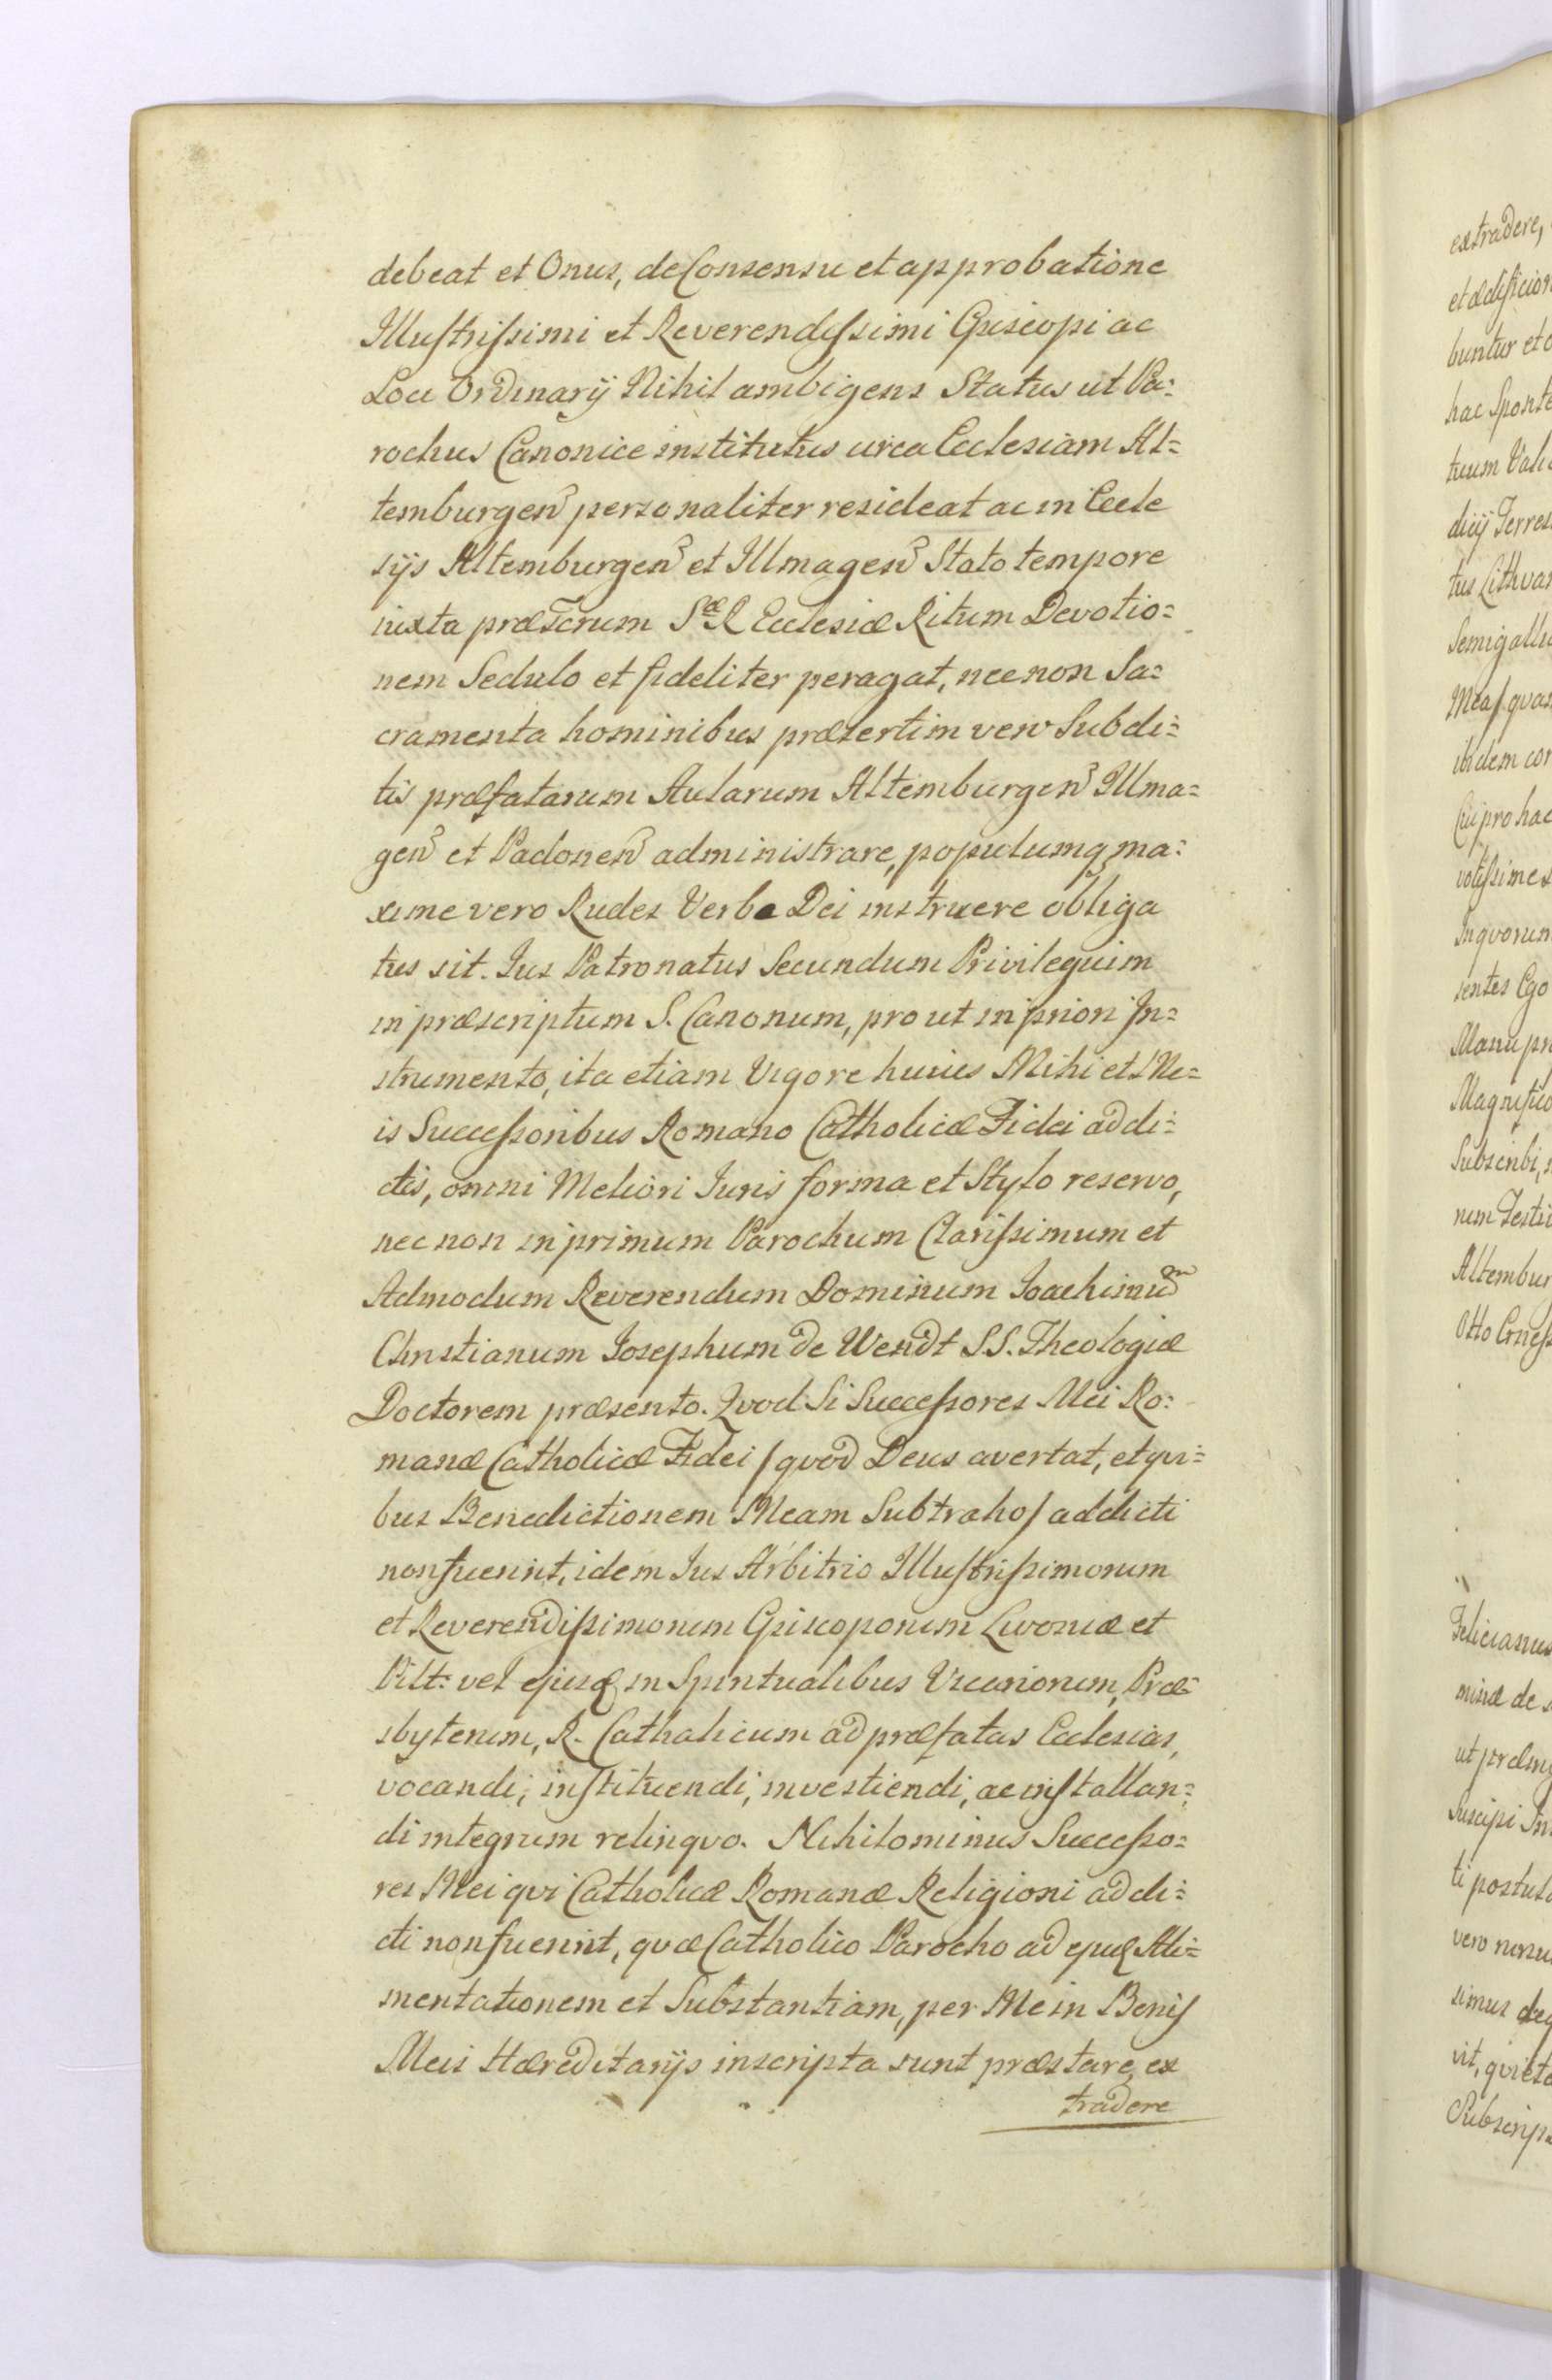 debeat et Onus, de Consensu et approbatione
Illustrissimi et Reverendissimi Episcopi ac
Loci Ordinarij Nihil ambigens Status ut Pa=
rochus Canonice institutus circa Ecclesiam Al=
temburgen personaliter resideat ac in Eccle
sijs Altemburgen et Illmagen Stato tempore
iuxta præscrum Sæ R Ecclesiæ Ritum Devotio=
nem Sedulo et fideliter peragat, nec non Sa=
cramenta hominibus præsertim vero Subdi=
tis præfatarum Aularum Altemburgen Illma=
gen et Padonen administrare, populumq ma=
xime vero Rudes Verbo Dei instruere obliga
tus sit. Ius Patronatus Secundum Privilegium
in præscriptum S. Canonum, pro ut in priori In=
strumento, ita etiam Vigore huius Mihi et Me=
is Successoribus Romano Catholicæ Fidei addi=
ctis, omni Meliori Iuris forma et Stylo reservo,
nec non in primum Parochum Clarissimum et
Admodum Reverendum Dominum Ioachimum
Christianum Iosephum de Wendt S.S. Theologiæ
Doctorem præsento. Qvod Si Successores Mei Ro=
manæ Catholicæ Fidei / qvod Deus avertat, et qvi=
bus Benedictionem Meam Subtraho / addicti
non fuerint, idem Ius Arbitrio Illustrissimorum
et Reverendissimorum Episcoporum Livoniæ et
Pilt: vel ejusq in Spiritualibus Vicariorum, Præ=
sbyterum, R. Catholicum ad præfatas Ecclesias,
vocandi, instituendi, investiendi, ac installan=
di integrum relinqvo. Nihilominus Successo=
res Mei qvi Catholicæ Romanæ Religioni addi=
cti non fuerint, qvæ Catholico Parocho ad ejusq Ali=
mentationem et Substantiam, per Me in Bonis
Meis Hæreditarijs inscripta sunt præstare, ex
tradere
extradere,
et ædificior
buntur et
hac Sponte
truum Vali
dicij Terres
tus Lithvan
Semigalliæ
Mea / quas
ibidem cor
Cui pro hac
votissime
In qvorum
sentes Ego
Manu pr
Magnifico
Subscribi,
rum Testi
Altembur
Otto Ernes
Felicianus
minæ de
ut præm
Suscipi In
ti postula
vero nunu
simus
vit, qviet
Subscrip